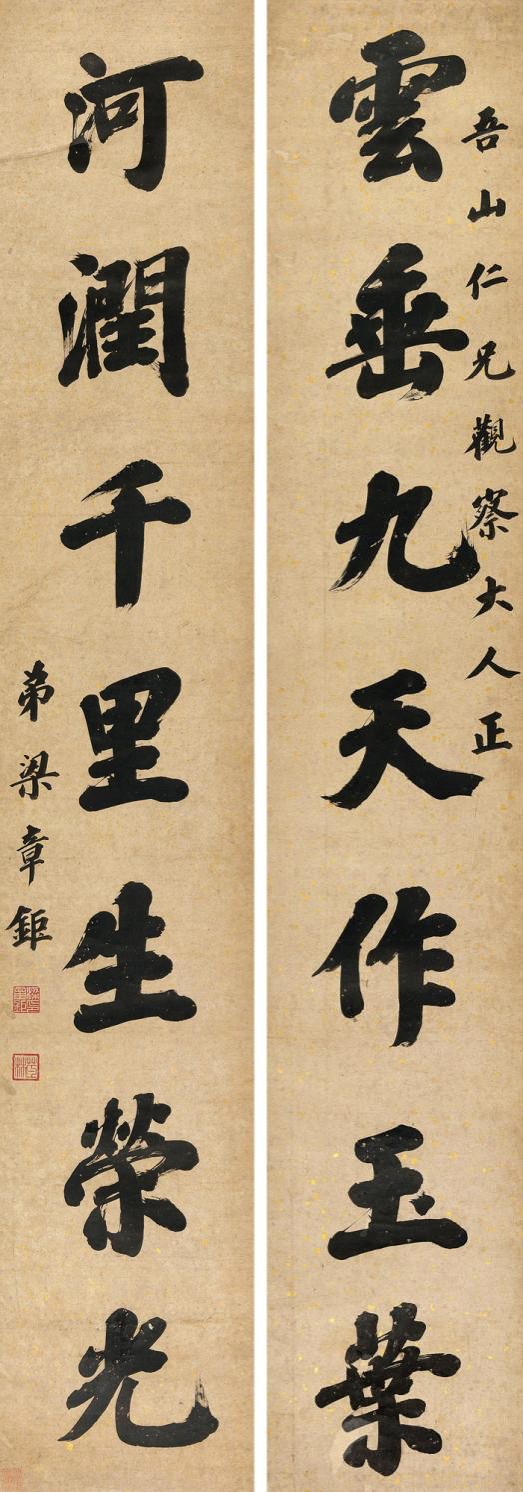 吾山仁兄觀察大人正
雲垂九天作玉葉
河潤千里生榮光
弟梁章鉅